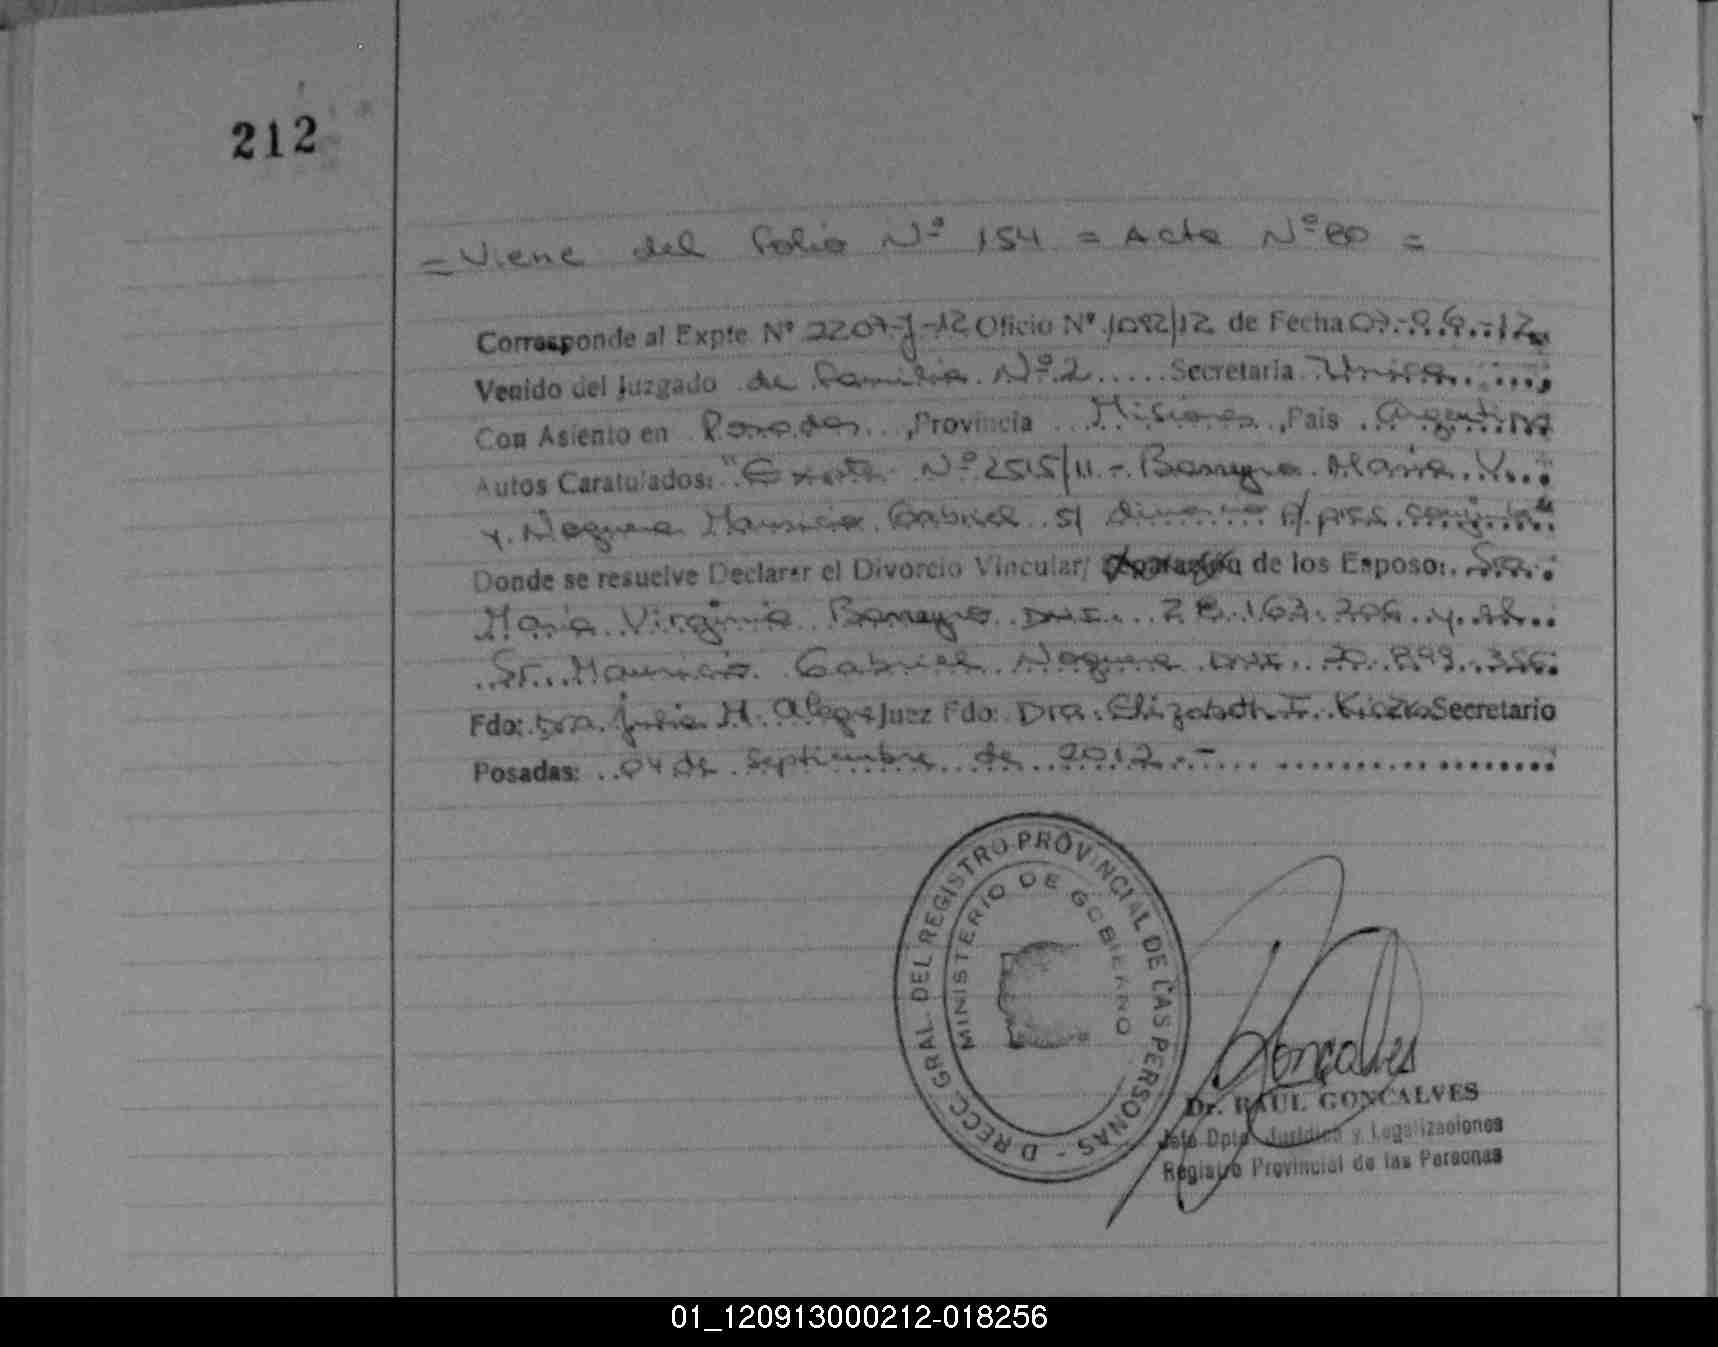 212
= Viene del folio Nº 154 = Acta Nº 80 =
Corresponde al Expte Nº 2207-J-12 Oficio Nº 1092/12 de Fecha 07-06-12
Venido del Juzgado de Familia Nº 2 ..... Secretaria Unica ......,
Con Asiento en Posadas ..., Provincia ... Misiones, Pais ... Argentina
Autos Caratulados: "Expte Nº 2515/11 - Barreyro Maria V...
y Noguera Mauricio Gabriel s/ divorcio p/ pres. conjunta"
Donde se resuelve Declarar el Divorcio Vincular/ Separación de los Esposo: Sra
Maria Virginia Barreyro DNI 28.163.206 y al
Sr. Mauricio Gabriel Noguera DNI 30.899.356
Fdo: Dra Julia M. Alegre Juez Fdo: Dra. Elizabeth I. Secretario
Posadas: 04 de septiembre de 2012.-
DIRECC. GRAL. DEL REGISTRO PROVINCIAL DE LAS PERSONAS -
MINISTERIO DE GOBIERNO
Goncalves
Dr. RAUL GONCALVES
Jefe Dpto. Juridico y Legalizaciones
Registro Provincial de las Personas
01_120913000212-018256